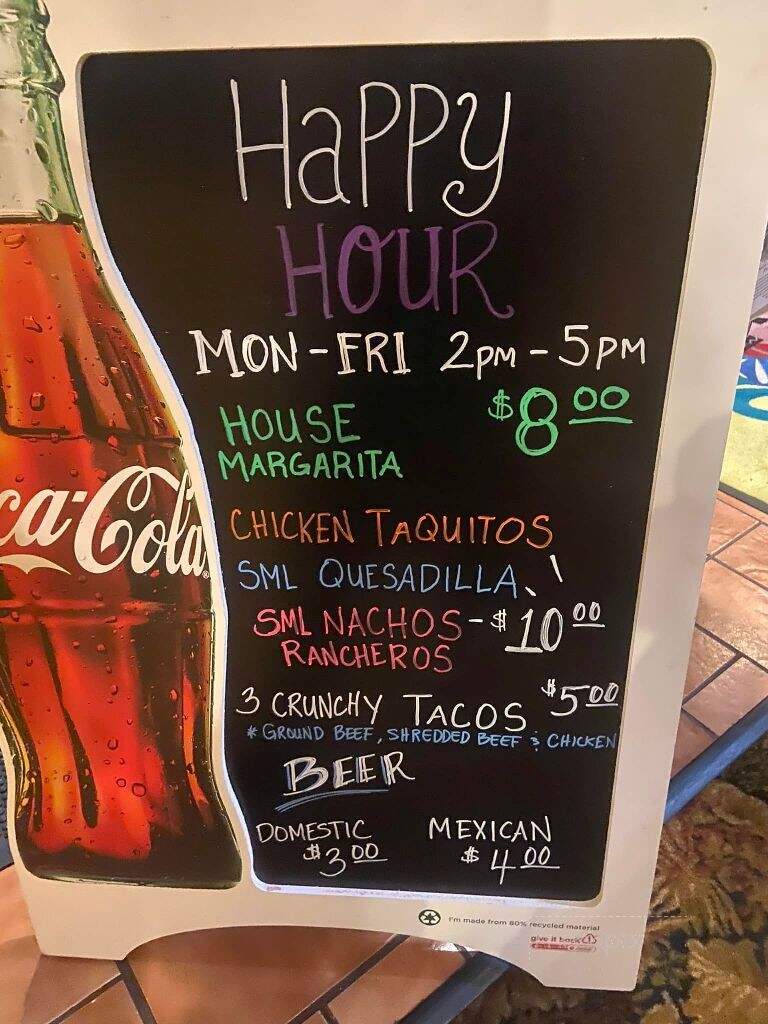 HaPPy
HOUR
MON-FRI 2PM-5PM
HOUSE $8.00
MARGARITA
CHICKEN TAQUITOS
SML QUESADILLA
SML NACHOS - $10.00
RANCHEROS
3 CRUNCHY TACOS $5.00
* GROUND BEEF, SHREDDED BEEF & CHICKEN
BEER
DOMESTIC MEXICAN
$3.00 $4.00
ca-Cola
I'm made from 80% recycled material
give it back